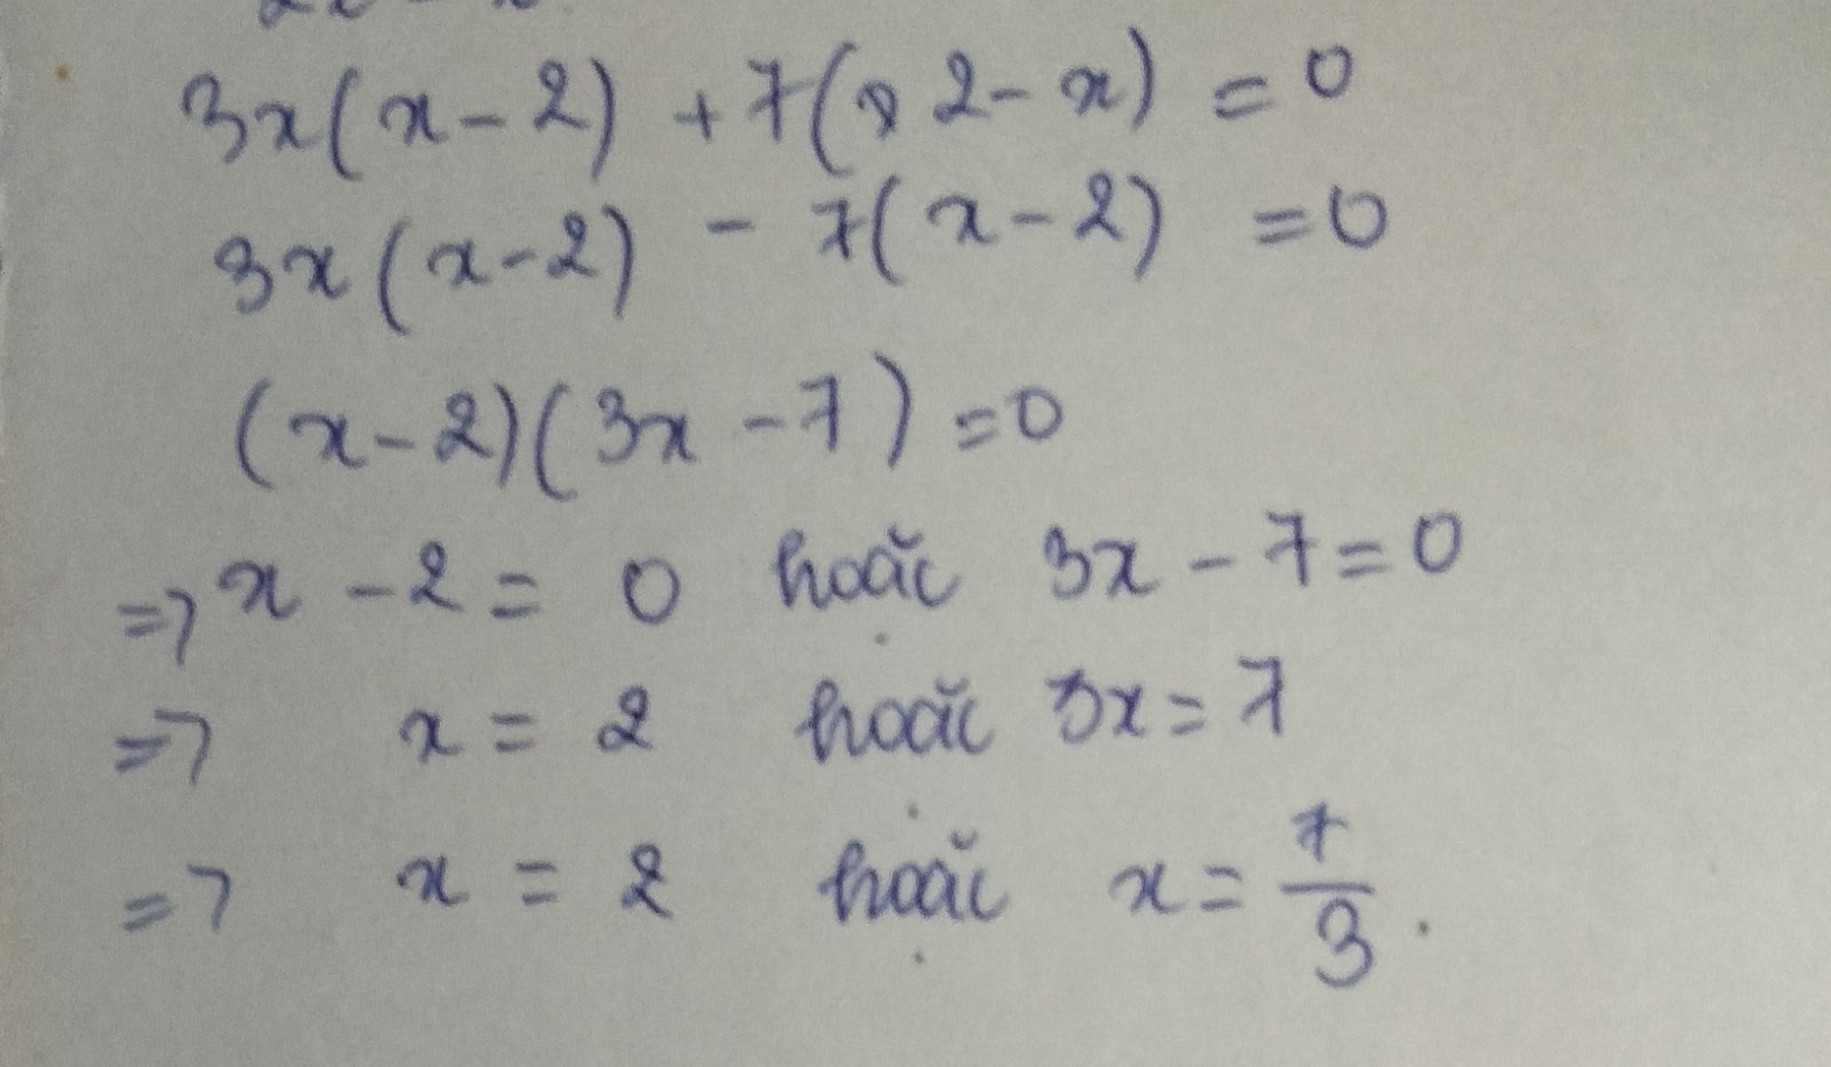 3x(x-2) + 7(2-x) = 0
3x(x-2) - 7(x-2) = 0
(x-2)(3x-7) = 0
=> x - 2 = 0 hoặc 3x - 7 = 0
=> x = 2 hoặc 3x = 7
=> x = 2 hoặc x = 7/3.